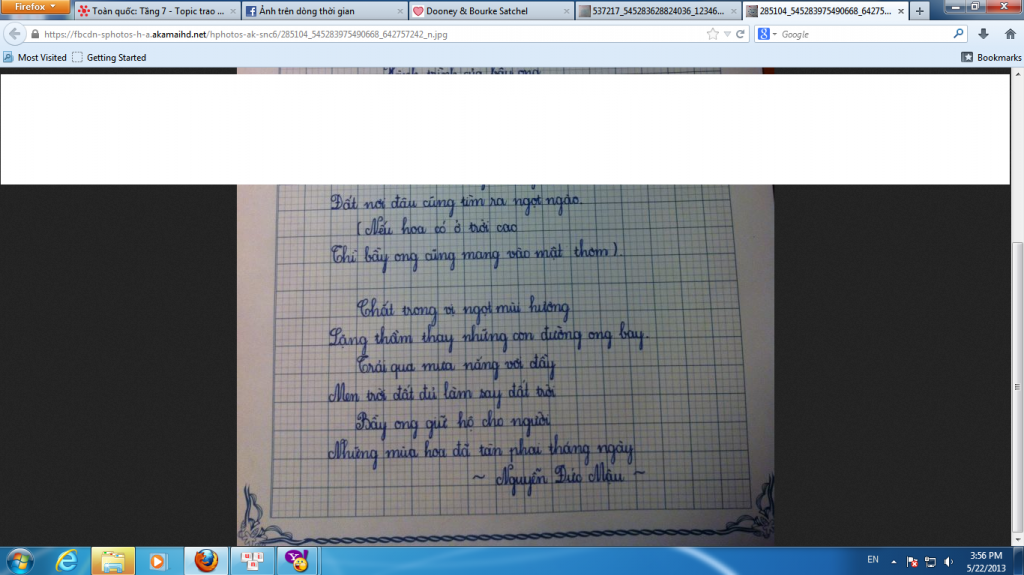 Firefox
Toàn quốc: Tăng 7 - Topic trao ...
Ảnh trên dòng thời gian
Dooney & Bourke Satchel
537217_545283628824036_12346...
285104_545283975490668_64275...
https://fbcdn-sphotos-h-a.akamaihd.net/hphotos-ak-snc6/285104_545283975490668_642757242_n.jpg
Google
Most Visited
Getting Started
Bookmarks
Đất nơi đâu cũng tìm ra ngọt ngào.
(Nếu hoa có ở trời cao
Thì bầy ong cũng mang vào mật thơm).
Chất trong vị ngọt mùi hương
Lặng thầm thay những con đường ong bay.
Trải qua mưa nắng vơi đầy
Men trời đất đủ làm say đất trời
Bầy ong giữ hộ cho người
Những mùa hoa đã tàn phai tháng ngày
~ Nguyễn Đức Mậu ~
EN
3:56 PM
5/22/2013